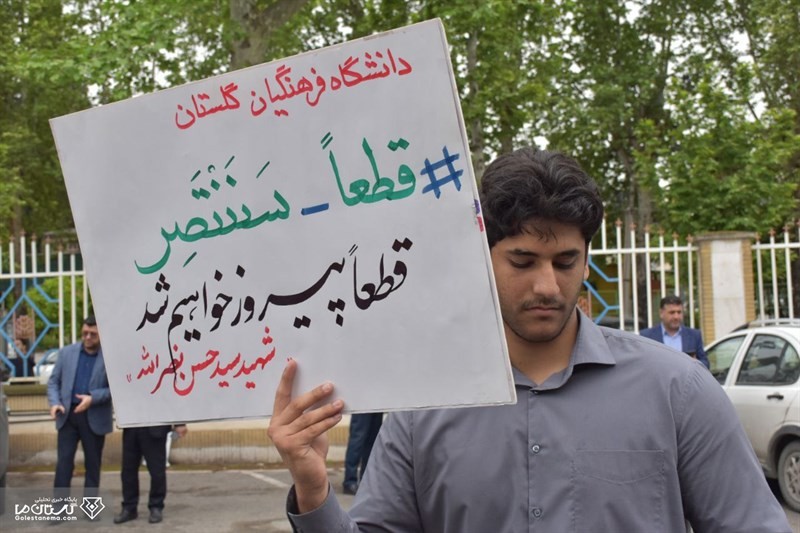 دانشگاه فرهنگیان گلستان
#قطعاً_سَنَنْتَصِر
قطعاً پیروز خواهیم شد
"شهید سید حسن نصرالله"
پایگاه خبری تحلیلی
گلستان ما
Golestanema.com